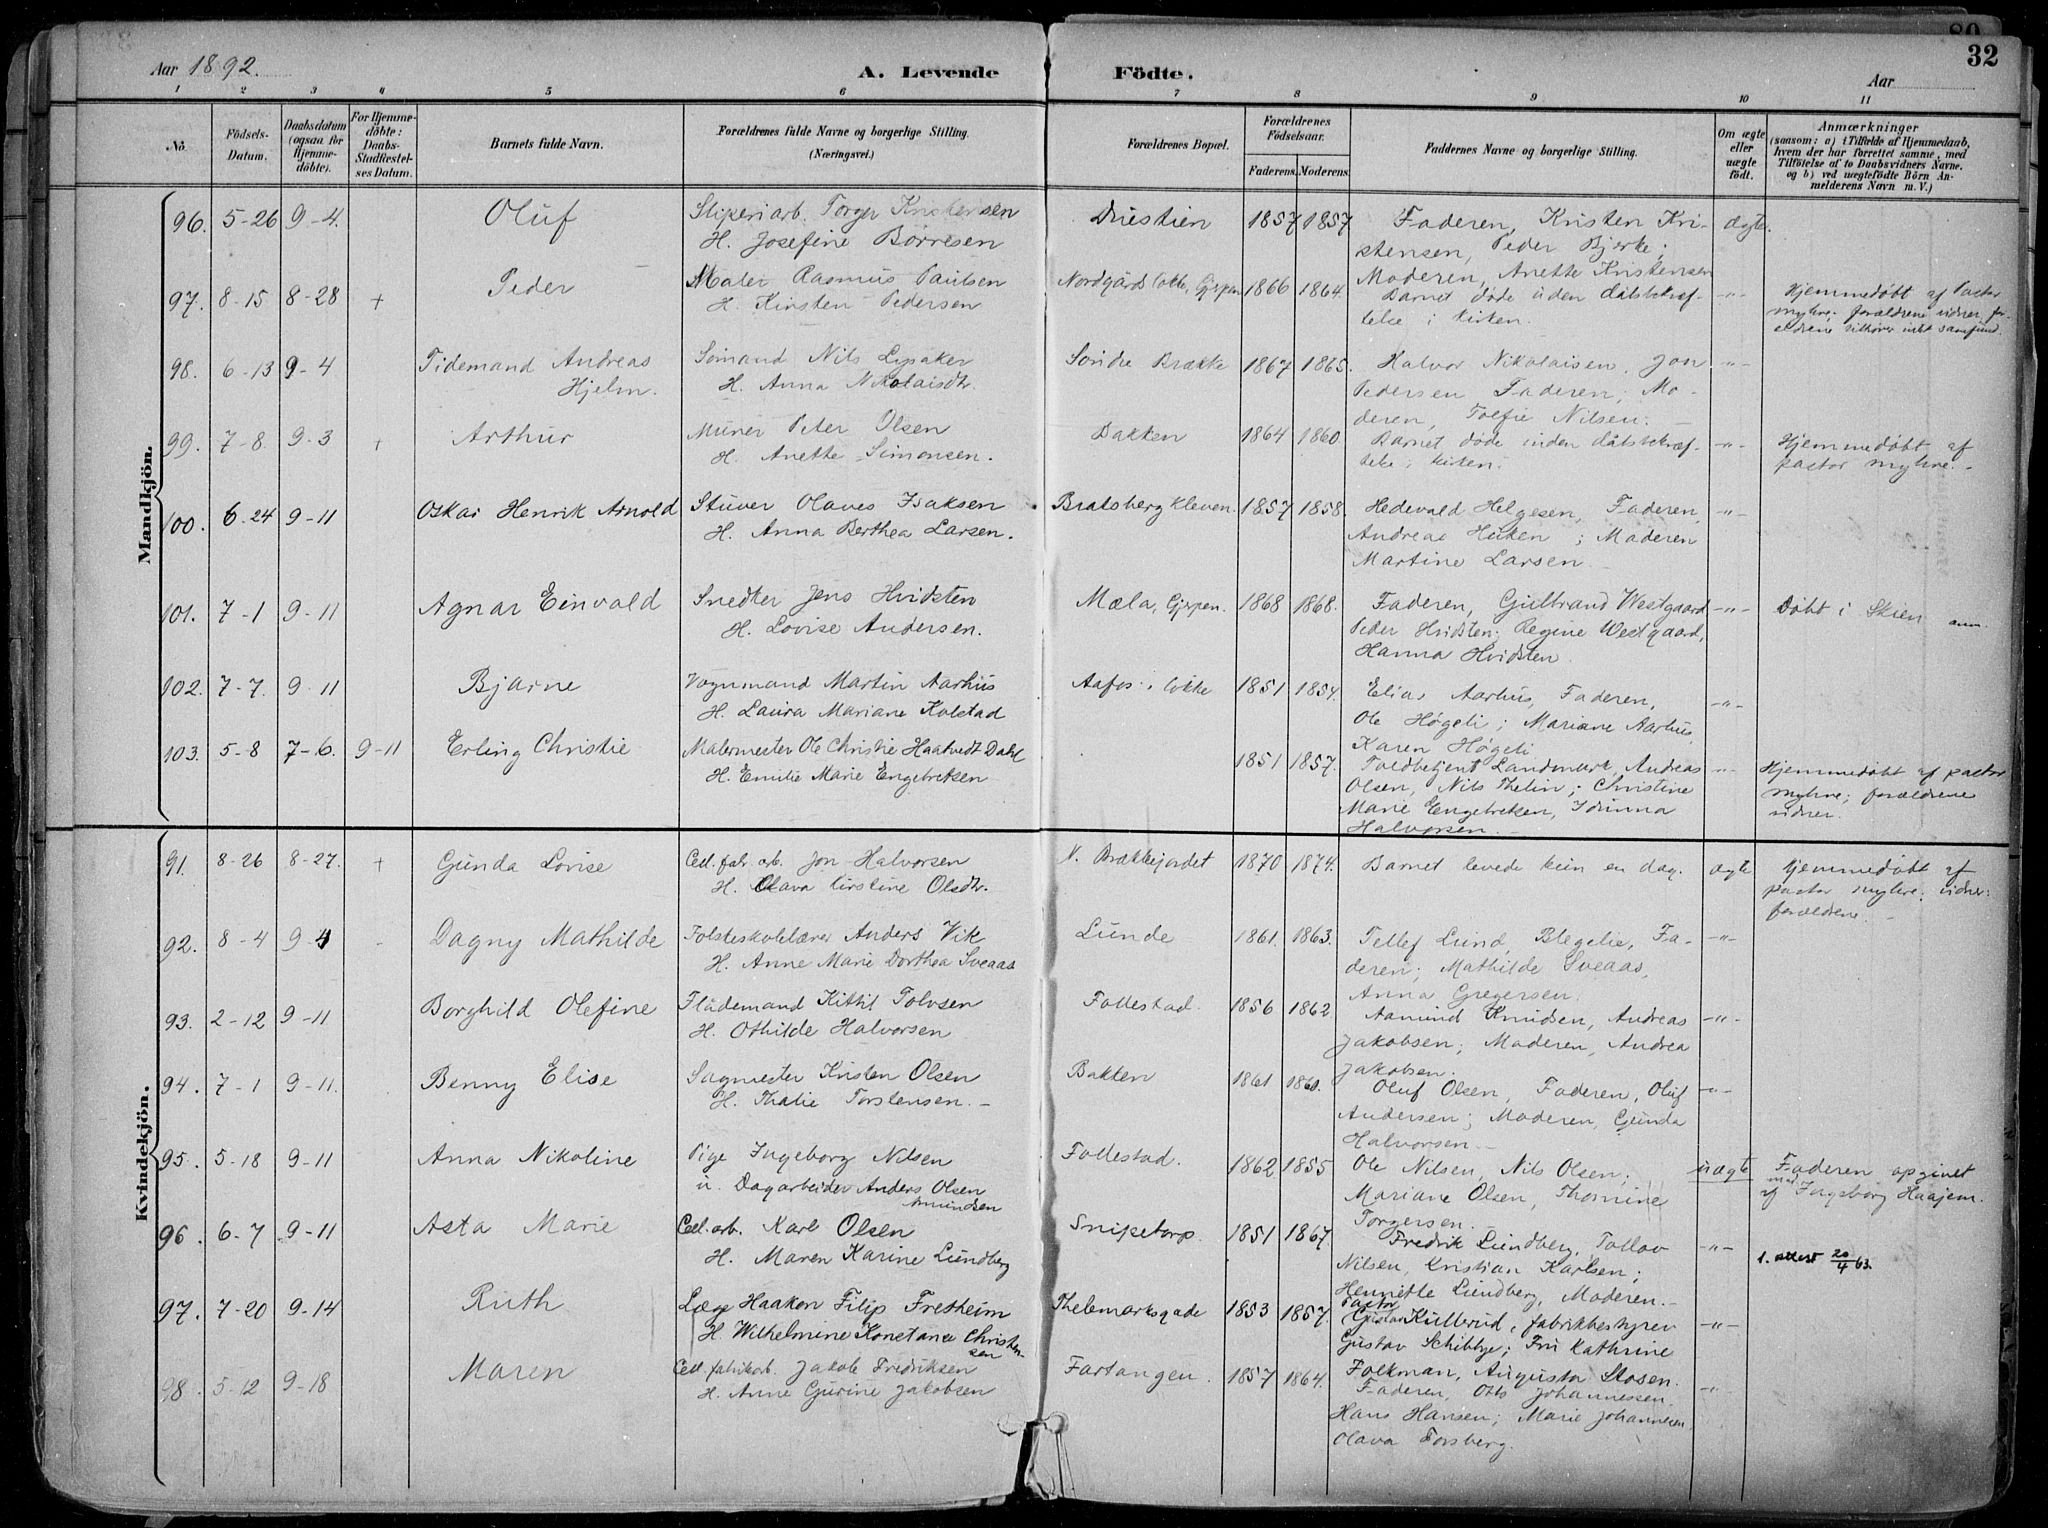 Aar 1892. A. Levende Födte. Aar 32
1 2 3 4 5 6 7 8 9 10 11
No. Födsels-Datum. Daabsdatum (ogsaa for Hjemmedöbte). For Hjemmedöbte: Daabs-Stadfæstelses Datum. Barnets fulde Navn. Forældrenes fulde Navne og borgerlige Stilling. (Næringsvei.) Forældrenes Bopæl. Forældrenes Födselsaar. Faderens. Moderens. Faddernes Navne og borgerlige Stilling. Om ægte eller uægte født. Anmærkninger (saasom: a) i Tilfælde af Hjemmedaab, hvem der har forrettet samme, med Tilföielse af to Daabsvidners Navne. og b) ved uægtefödte Börn Anmelderens Navn m. V.)
Mandkjön.
96. 5-26 9-4. Oluf Sliperiarb. Torger Kristensen Dustien 1857 1857. Faderen, Kristen Kri- ægte.
H. Josefine Börresen stensen, Peder Bjerke;
Moderen, Anette Kristensen
97. 8-15 8-28 + Peder Maler Rasmus Paulsen Nordgårds løkke, Gjerpen 1866 1864. Barnet døde uden dåbsbekræf- -"- Hjemmedøbt af Pastor
H. Kirsten Pedersen telse i kirken. Myhre. forældrene vidner, for-
ældrene tilhører intet samfund.
98. 6-13 9-4 Tidemand Andreas Sömand Nils Lysaker Söndre Brække 1867 1865. Halvor Nikolaisen, Jon -"-
Hjelm. H. Anna Nikolaisdtr. Pedersen Faderen; Mo-
deren, Tolfie Nilsen.
99. 7-8 9-3 + Arthur Murer Peter Olsen Bakken 1864 1860. Barnet døde inden dåbsbekræf- -"- Hjemmedøbt af
H. Anette Simonsen. telse i kirken. pastor Myhre.
100. 6-24 9-11 Oskar Henrik Arnold Stuver Olaves Isaksen Bratsberg Kleven. 1857 1858. Hedevald Helgesen, Faderen, -"-
H. Anna Berthea Larsen. Andreas Heiken; Moderen
Martine Larsen
101. 7-1 9-11 Agnar Einvald Snedker Jens Hvidsten Mæla, Gjerpen. 1868 1868. Faderen, Gulbrand Westgaard -"- Døbt i Skien
H. Lovise Andersen. Peder Hvidsten; Regine Westgaard,
Hanna Hvidsten.
102. 7-7. 9-11 Bjarne Vognmand Martin Aarhus Aafos løkke 1851 1854. Elias Aarhus, Faderen, -"-
H. Laura Mariane Kolstad Ole Høgeli; Mariane Aarhus,
Karen Høgeli
103. 5-8 7-6. 9-11 Erling Christie Malermester Ole Christie Haatvedt Dahl 1851 1857. Toldbetjent Landmark, Andreas -"- Hjemmedøbt af pastor
H. Emilie Marie Engebretsen Olsen, Nils Thelin; Christine Myhre; forældrene
Marie Engebretsen, Idrinna vidner.
Halvorsen.
Kvindekjön.
91. 8-26 8-27. + Gunda Lovise Cell.fabr.arb. Jon Halvorsen N. Brækkejordet 1870 1874. Barnet levede kun en dag. ægte Hjemmedøbt af
H. Olava Kirstine Olsdtr. pastor Myhre. vidner:
forældrene.
92. 8-4 9-4 Dagny Mathilde Folkeskolelærer Anders Vik Lunde 1861. 1863. Tellef Lund, Blegelie, Fa- -"-
H. Anne Marie Dorthea Sveaas deren; Mathilde Sveaas,
Anna Gregersen.
93. 2-12 9-11 Borghild Olefine Flådemand Kittil Tolvsen Follestad. 1856 1862. Aamund Knudsen, Andreas -"-
H. Othilde Halvorsen Jakobsen; Moderen, Andrea
Jakobsen.
94. 7-1 9-11. Benny Elise Sagmester Kristen Olsen Bakken 1861 1860. Oluf Olsen, Faderen, Oluf -"-
H. Thalie Torstensen. Andersen; Moderen, Gunda
Halvorsen.
95. 5-18 9-11 Anna Nikoline Pige Ingeborg Nilsen Follestad. 1862 1855 Ole Nilsen, Nils Olsen; uægte Faderen opgivet
u. Dagarbeider Anders Olsen Mariane Olsen, Thomine af Ingeborg Haajem.
Amundsen Torgersen.
96. 6-7 9-11 Asta Marie Cell.arb. Karl Olsen Snipetorp. 1851 1867. Fredrik Lundberg, Tollov -"- 1. attest 20/4 63.
H. Maren Karine Lundberg Nilsen, Kristian Karlsen;
Henriette Lundberg, Moderen.
97. 7-20 9-14 Ruth Læge Haakon Filip Fretheim Thelemarksgade 1853 1857. Pastor Gustav Kullerud, fabrikbestyrer -"-
H. Wilhelmine Konstance Christen- Gustav Schibbye; Fru Kathrine
sen Folkman, Augusta Stosen.
98. 5-12 9-18 Maren Cell.fabrikab. Jakob Fredriksen Fartangen. 1857 1864. Faderen, Otto Johannessen, -"-
H. Anne Gurine Jakobsen Hans Hansen; Marie Johannesen
Olava Forsberg.